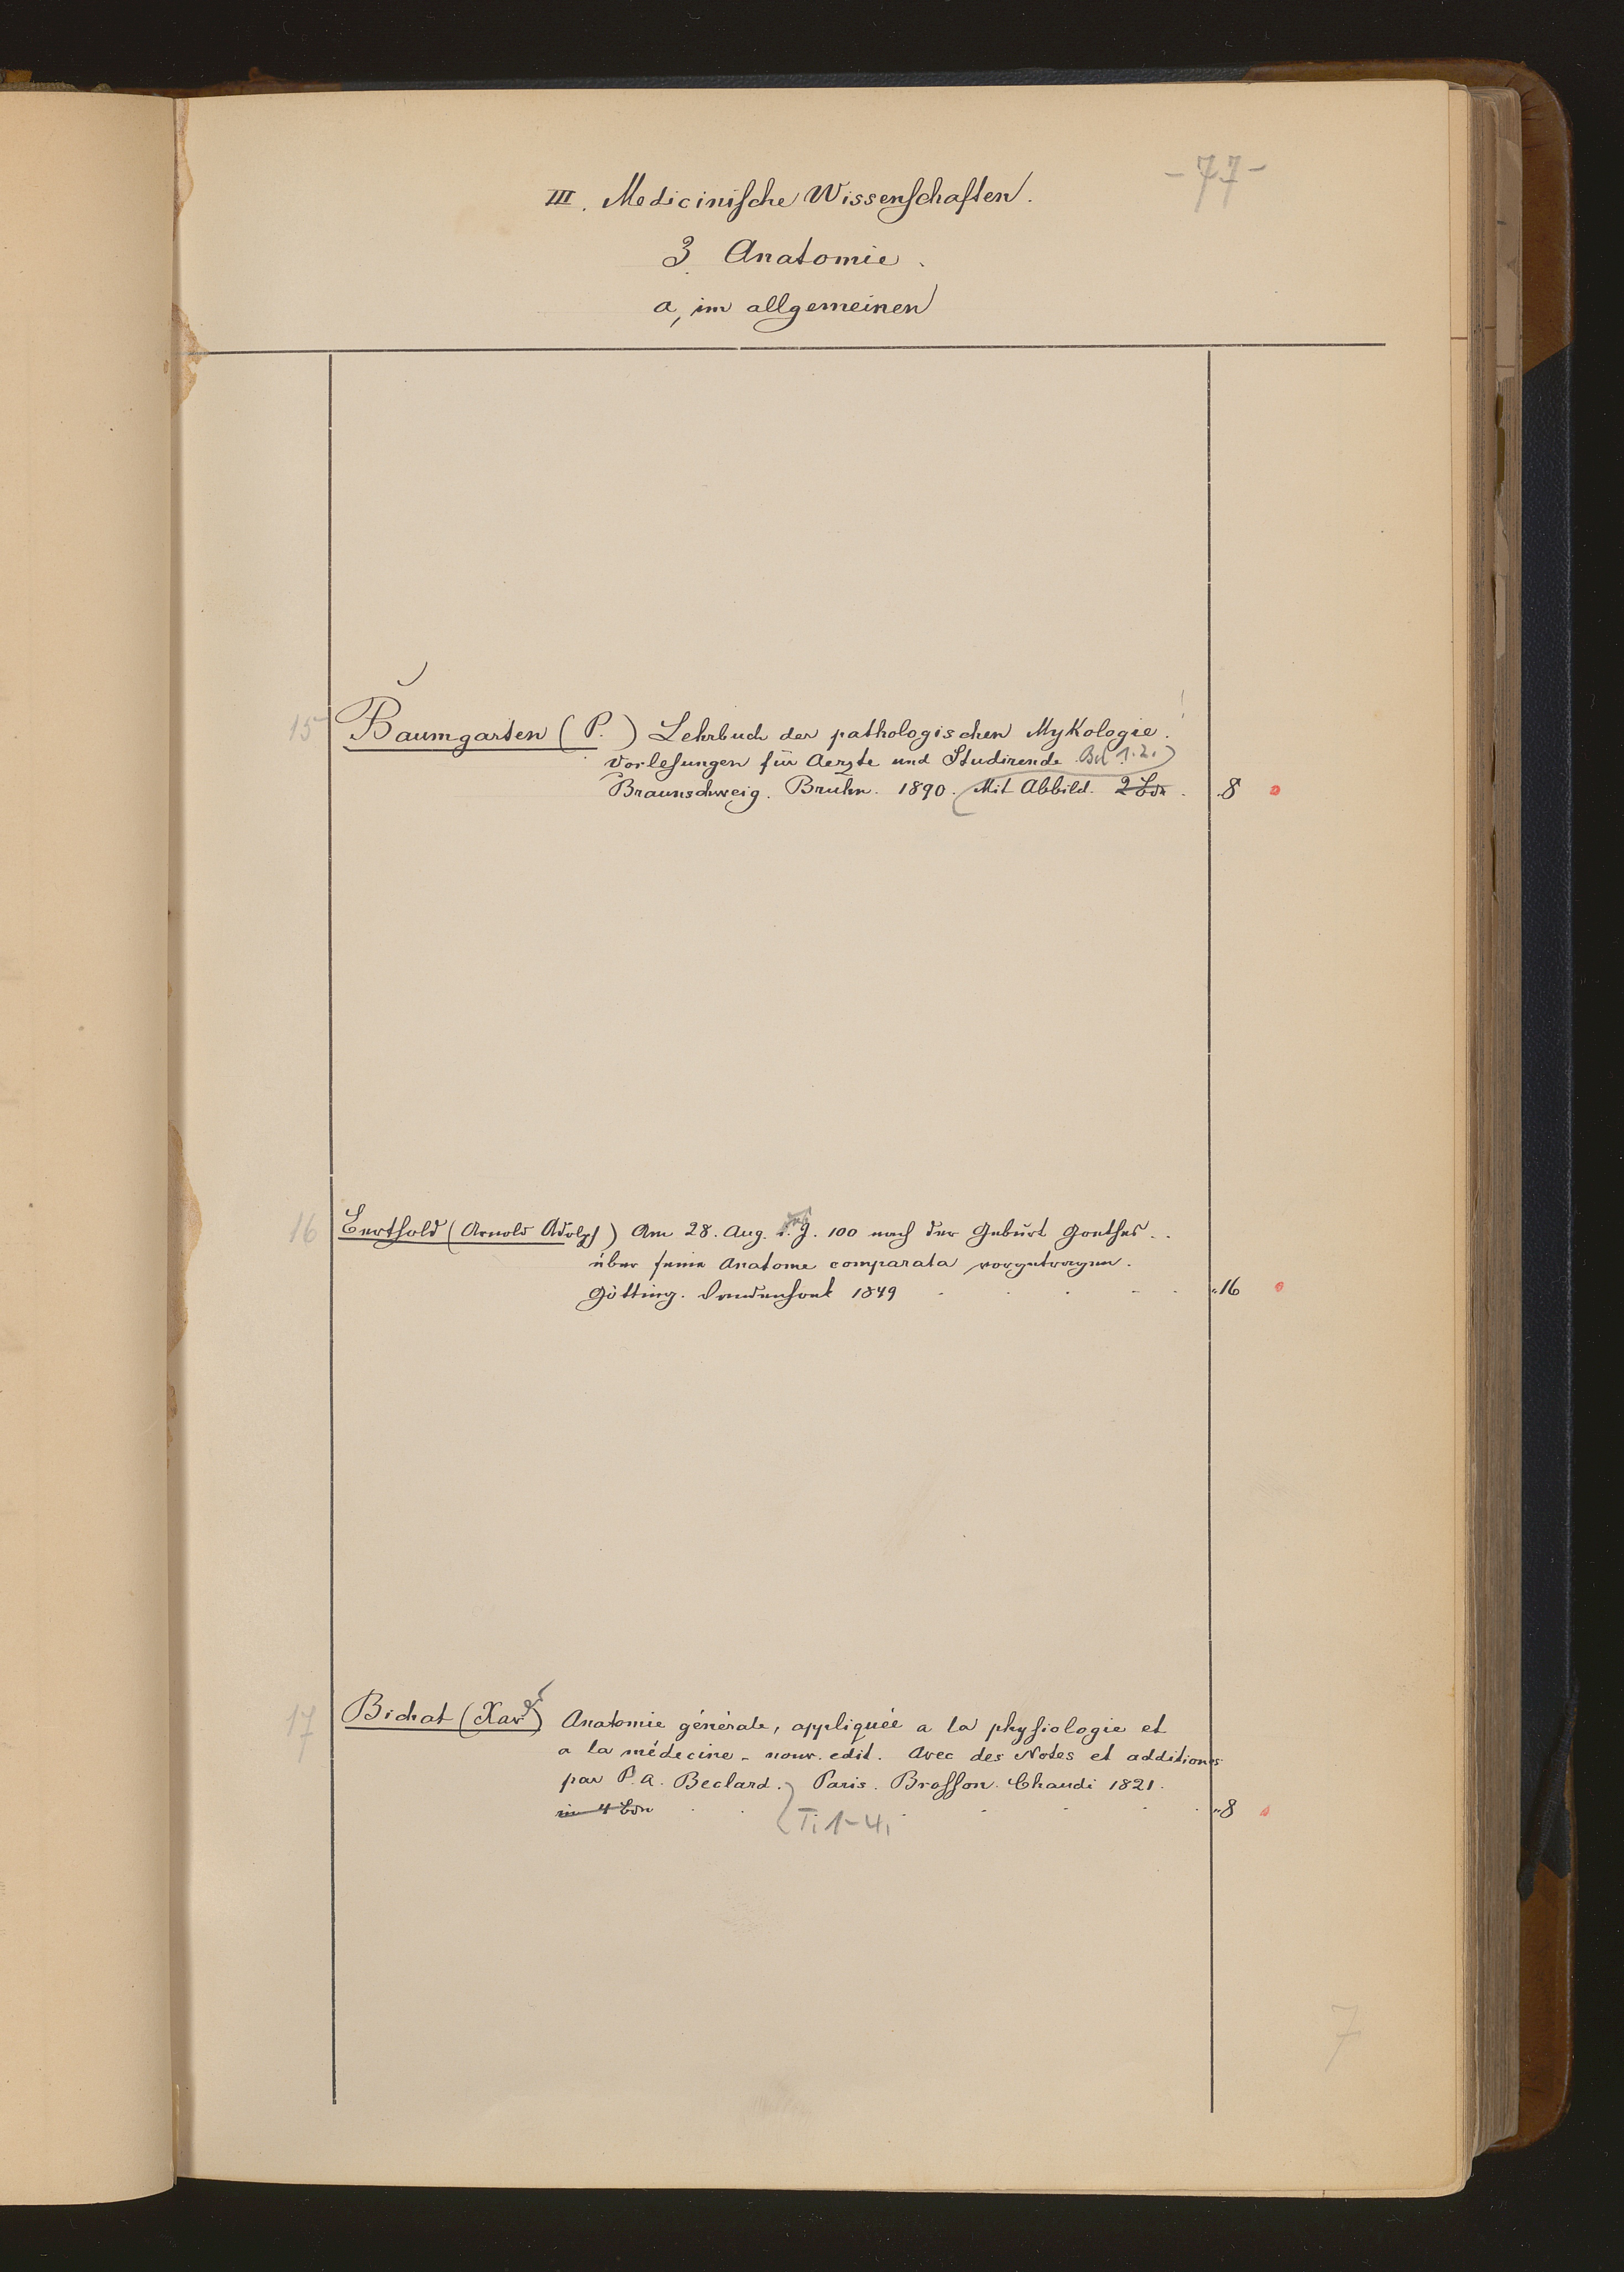 -77-
III. Medicinische Wissenschaften.
3. Anatomie.
a, im allgemeinen
15 Baumgarten (P.) Lehrbuch der pathologischen Mykologie.
Vorlesungen für Aerzte und Studirende. Bd 1.2.
Braunschweig. Bruhn. 1890. Mit Abbild. 2 Bde. 8
16 Berthold (Arnold Adolph) Am 28. Aug. d. J. 100 nach der Geburt Goethes..
über seine Anatome comparata vorgetragen.
Götting. Vandenhoek 1849 " 16
17 Bichat (Xavr) Anatomie générale, appliquée a la physiologie et
a la médecine - nouv. edit. Avec des Notes et additiones
par P. A. Beclard. Paris. Brosson. Chaudi 1821.
in 4 Bdn T. 1-4. " 8
7